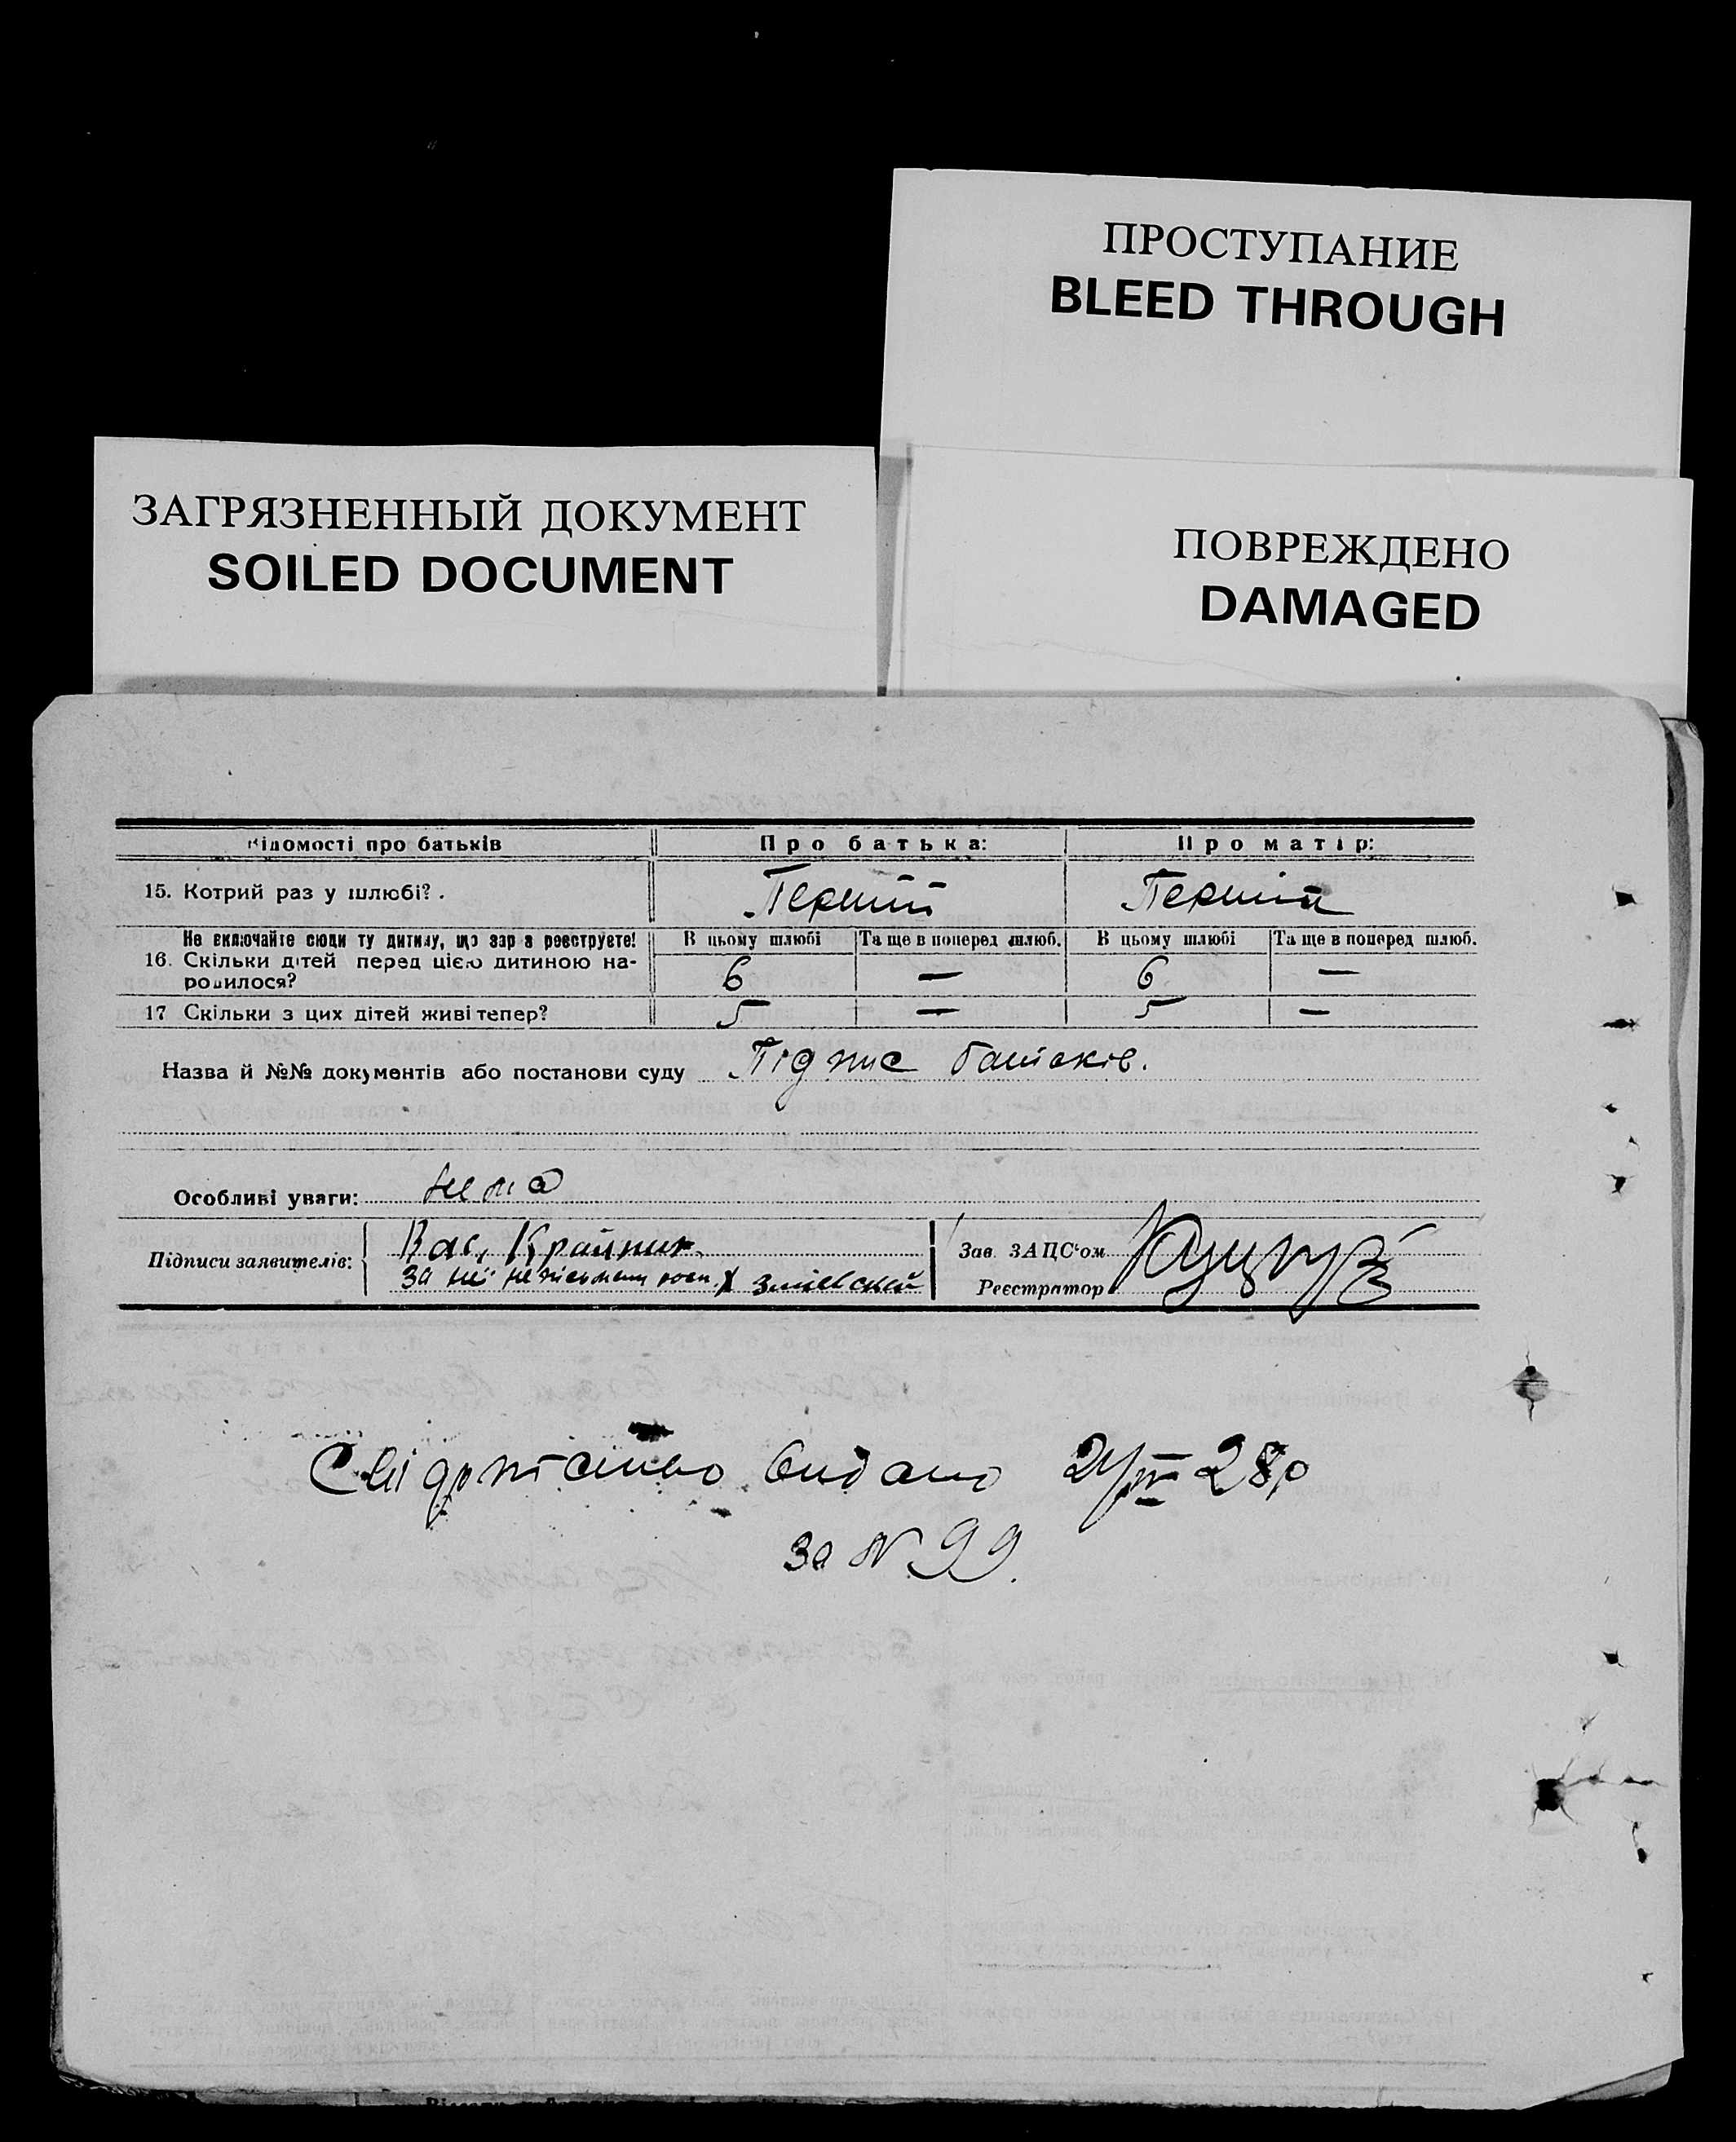 ПРОСТУПАНИЕ
BLEED THROUGH
ЗАГРЯЗНЕННЫЙ ДОКУМЕНТ
SOILED DOCUMENT
ПОВРЕЖДЕНО
DAMAGED
Відомості про батьків Про батька: Про матір:
15. Котрий раз у шлюбі?. Перший Перший
Не включайте сюди ту дитину, що зараз реєструєте! В цьому шлюбі Та ще в поперед шлюб. В цьому шлюбі Та ще в поперед шлюб.
16. Скільки дітей перед цією дитиною на-
родилося? 6 — 6 —
17 Скільки з цих дітей живі тепер? 5 — 5 —
Назва й №№ документів або постанови суду Підпис батьків.
Особливі уваги: нема
Підписи заявителів: Вас. Крайник
За неї
Зав. ЗАЦС'ом
Реєстратор
Свідоцтво видано 28р
за N 99.